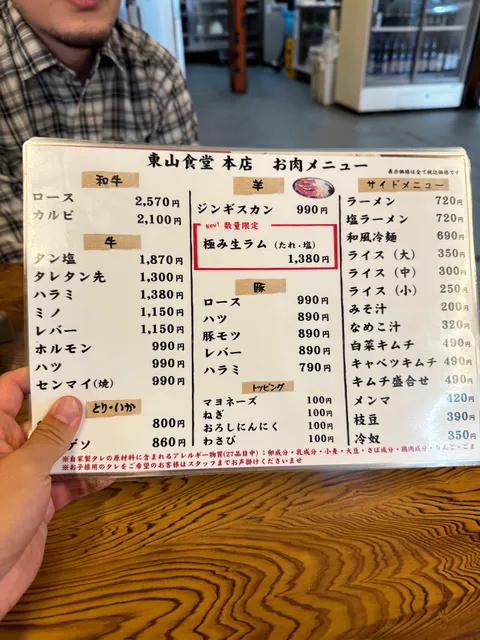 東山食堂 本店 お肉メニュー
表示価格は全て税込価格です
和牛
ロース 2,570円
カルビ 2,100円
牛
タン塩 1,870円
タレタン先 1,300円
ハラミ 1,380円
ミノ 1,150円
レバー 1,150円
ホルモン 990円
ハツ 990円
センマイ(焼) 990円
とり・いか
800円
ゲソ 860円
羊
ジンギスカン 990円
New! 数量限定
極み生ラム (たれ・塩)
1,380円
豚
ロース 990円
ハツ 890円
豚モツ 890円
レバー 890円
ハラミ 790円
トッピング
マヨネーズ 100円
ねぎ 100円
おろしにんにく 100円
わさび 100円
サイドメニュー
ラーメン 720円
塩ラーメン 720円
和風冷麺 690円
ライス (大) 350円
ライス (中) 300円
ライス (小) 250円
みそ汁 200円
なめこ汁 320円
白菜キムチ 490円
キャベツキムチ 490円
キムチ盛合せ 490円
メンマ 420円
枝豆 390円
冷奴 350円
※自家製タレの原材料に含まれるアレルギー物質(27品目中):卵成分・乳成分・小麦・大豆・さば成分・鶏肉成分・りんご・ごま
※お子様用のタレをご希望のお客様はスタッフまでお声掛けくださいませ